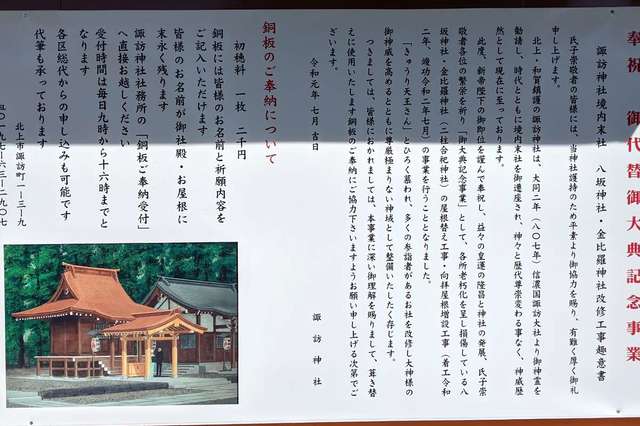 奉祝 御代替御大典記念事業
諏訪神社境内末社 八坂神社・金比羅神社改修工事趣意書
氏子崇敬者の皆様には、当神社護持のため平素より御協力を賜り、有難く厚く御礼
申し上げます。
北上・和賀鎮護の諏訪神社は、大同二年(八〇七年)信濃国諏訪大社より御神霊を
勧請し、時代とともに境内末社を御遷座され、神々と歴代尊崇変わる事なく、神威歴
然として現在に至っております。
此度、新帝陛下の御即位を謹んで奉祝し、益々の皇運の隆昌と神社の発展、氏子崇
敬者各位の繁栄を祈り「御大典記念事業」として、各所老朽化を呈し損傷している八
坂神社・金比羅神社(二社合祀神社)の屋根替え工事・向拝屋根増設工事(着工令和
二年、竣功令和二年七月)の事業を行うこととなりました。
「きゅうり天王さん」とひろく慕われ、多くの参詣者があるお社を改修し大神様の
御神威を高めるとともに尊厳極まりない神域として整備いたしたく存じます。
つきましては、皆様におかれましては、本事業に深い御理解を賜りまして、葺き替
えに使用いたします銅板のご奉納にご協力下さいますようお願い申し上げる次第でご
ざいます。
令和元年七月吉日
諏訪神社
銅板のご奉納について
初穂料 一枚 二千円
銅板には皆様のお名前と祈願内容を
ご記入いただけます
皆様のお名前が御社殿・お屋根に
末永く残ります
諏訪神社社務所の「銅板ご奉納受付」
へ直接お越しください
受付時間は毎日九時から十六時までと
なります
各区総代からの申し込みも可能です
代筆も承っております
北上市諏訪町一ー三ー九
電〇一九七ー六三ー二九〇七